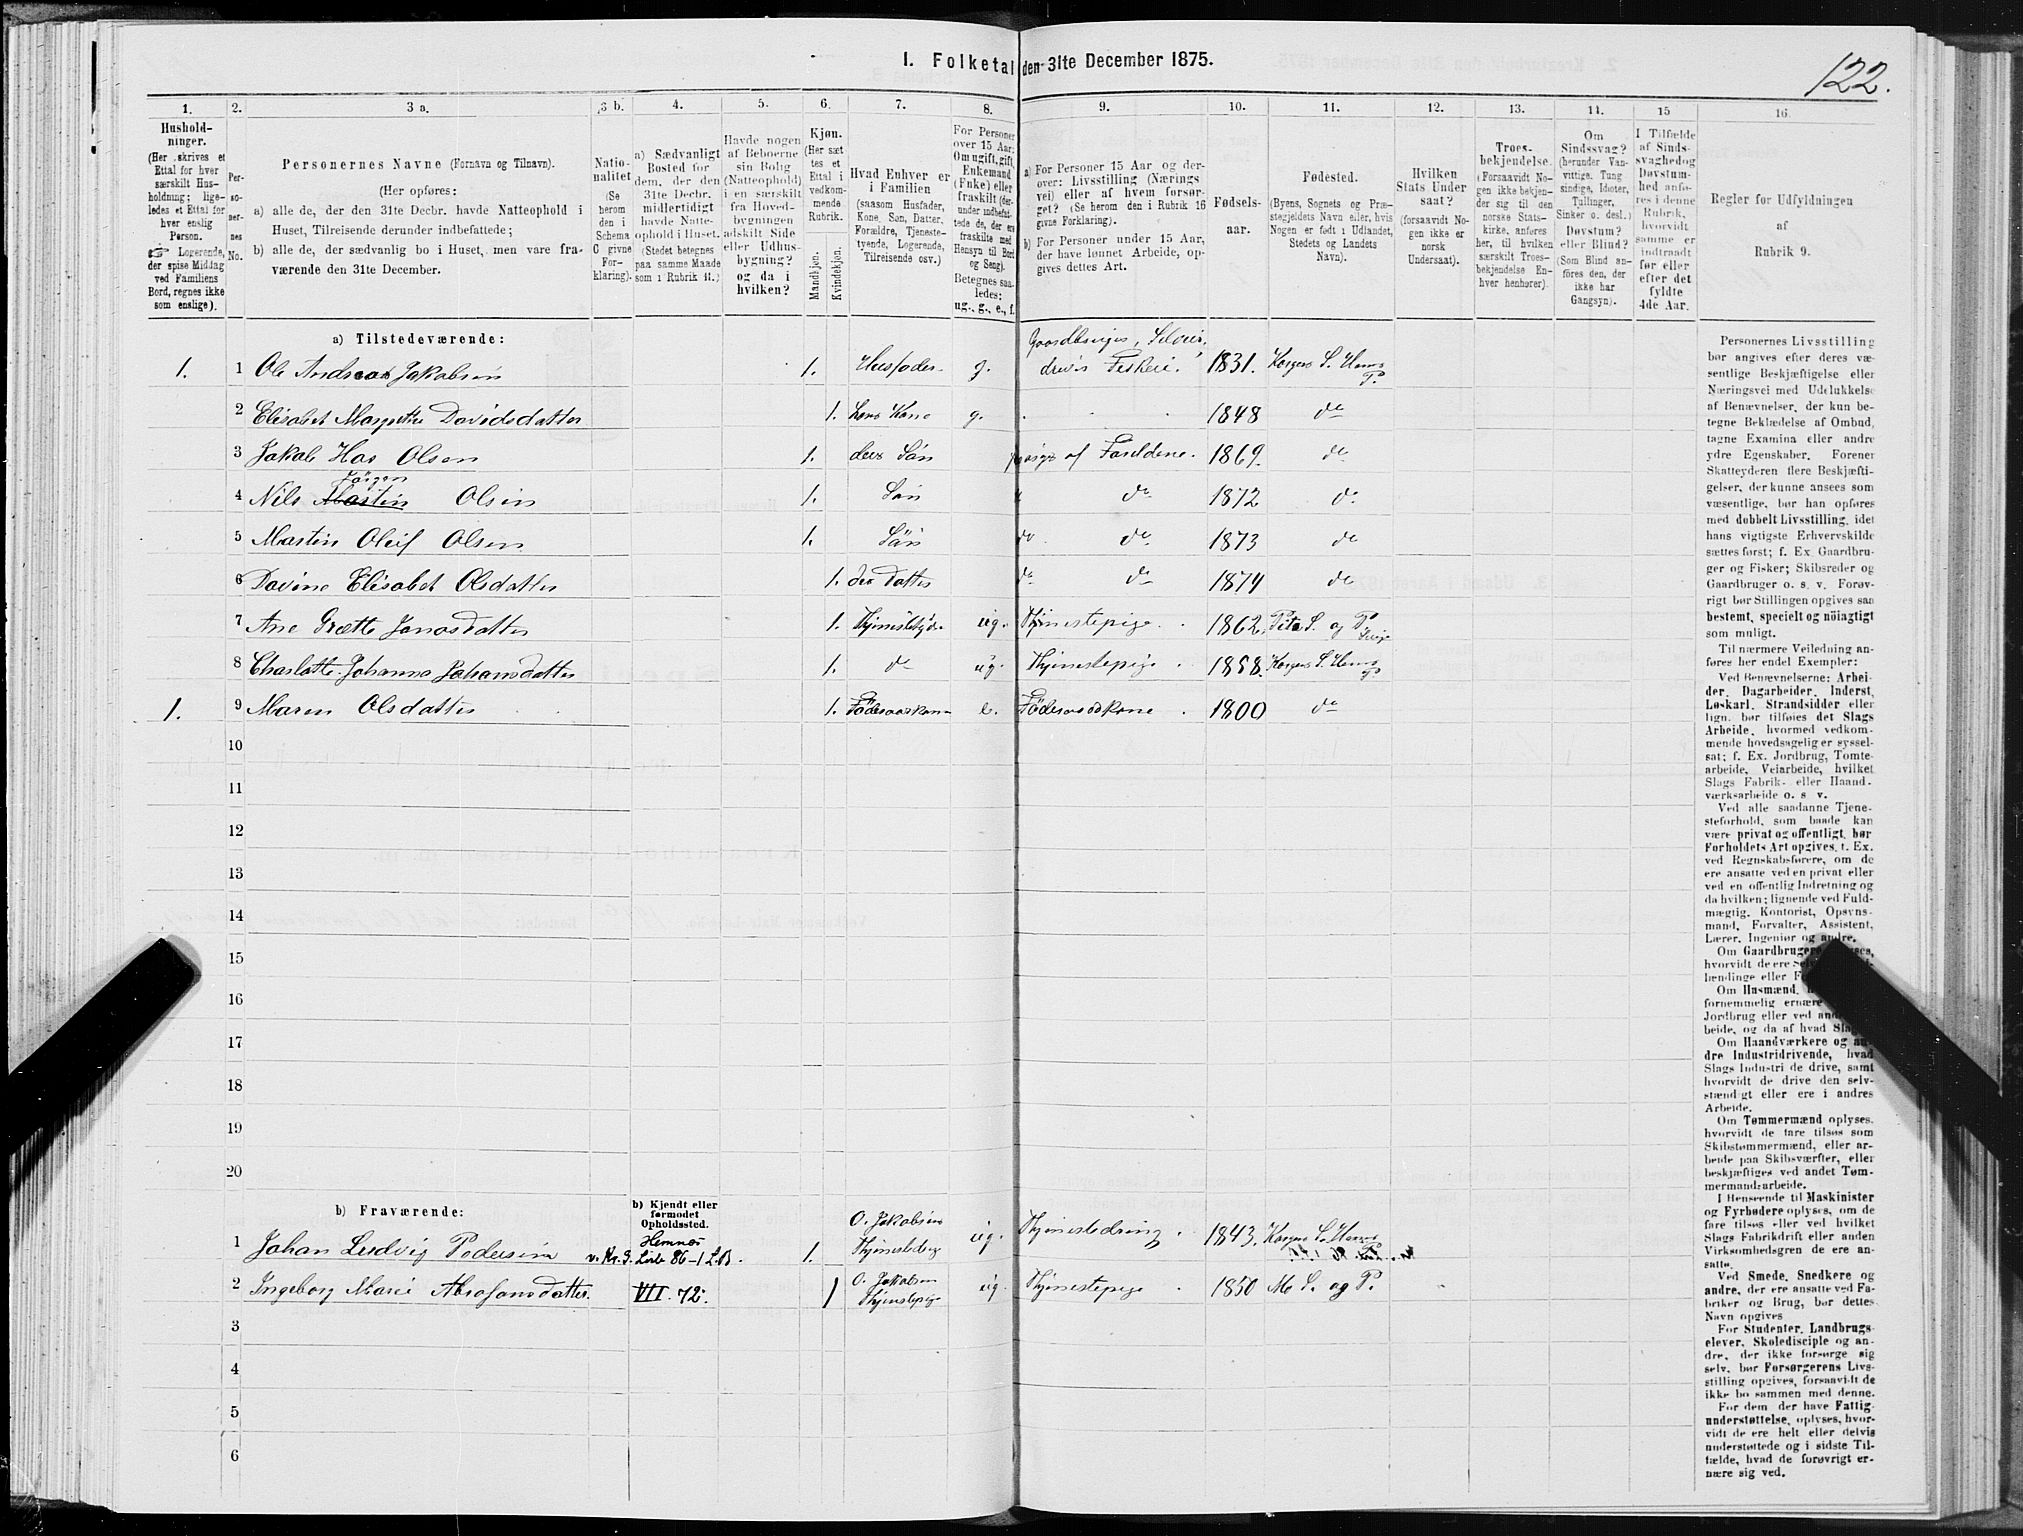 122.
1. Folketal den 31te December 1875.
1. 2. 3 a. 3 b. 4. 5. 6. 7. 8. 9. 10. 11. 12. 13. 14. 15 16.
Hushold-
ninger.
(Her skrives et
Ettal for hver
særskilt Hus-
holdning; lige-
ledes et Ettal for
hver enslig
Person.
☞ Logerende,
der spise Middag
ved Familiens
Bord, regnes ikke
som enslige).
Per-
so-
ner-
nes
No.
Personernes Navne (Fornavn og Tilnavn).
(Her opføres:
a) alle de, der den 31te Decbr. havde Natteophold i
Huset, Tilreisende derunder indbefattede;
b) alle de, der sædvanlig bo i Huset, men vare fra-
værende den 31te December.
Natio-
nalitet
(Se
herom
den i
Schema
C givne
For-
klaring).
a) Sædvanligt
Bosted for
dem, der den
31te Decbr.
midlertidigt
havde Natte-
ophold i Huset.
(Stedet betegnes
paa samme Maade
som i Rubrik 11.)
Havde nogen
af Beboerne
sin Bolig
(Natteophold)
i en særskilt
fra Hoved-
bygningen
adskilt Side
eller Udhus-
bygning?
og da i
hvilken?
Kjøn.
(Her sæt
tes et
Ettal i
vedkom-
mende
Rubrik.
Mandkjøn.
Kvindekjøn.
Hvad Enhver er
i Familien
(saasom Husfader,
Kone, Søn, Datter,
Forældre, Tjeneste-
tyende, Logerende,
Tilreisende osv.)
For Personer
over 15 Aar:
Om ugift, gift,
Enkemand
(Enke) eller
fraskilt (der-
under indbefat-
tede de, der ere
fraskilte med
Hensyn til Bord
og Seng).
Betegnes saa-
ledes:
ug., g., e., f.
a) For Personer 15 Aar og der-
over: Livsstilling (Nærings
vei) eller af hvem forsør-
get? (Se herom den i Rubrik 16
givne Forklaring).
b) For Personer under 15 Aar,
der have lønnet Arbeide, op-
gives dettes Art.
Fødsels-
aar.
Fødested.
(Byens, Sognets og Præ-
stegjeldets Navn eller, hvis
Nogen er født i Udlandet,
Stedets og Landets
Navn).
Hvilken
Stats Under
saat?
(forsaavidt No-
gen ikke er
norsk
Undersaat).
Troes-
bekjendelse.
(Forsaavidt No-
gen ikke bekjen-
der sig til den
norske Stats-
kirke, anføres
her, til hvilken
særskilt Troes-
bekjendelse En-
hver henhører).
Om
Sindssvag?
(herunder Van-
vittige, Tung
sindige, Idioter,
Tullinger,
Sinker o. desl.)
Døvstum?
eller Blind?
(Som Blind an-
føres den, der
ikke har
Gangsyn).
I Tilfælde
af Sinds-
svaghed og
Døvstum-
hed anfø-
res i denne
Rubrik,
hvorvidt
samme er
indtraadt
før eller
efter det
fyldte
4de Aar.
Regler for Udfyldningen
af
Rubrik 9.
a) Tilstedeværende:
1. 1 Ole Andreas Jakobsen 1. Husfader g. Gaardbruger, Selveier, drev Fiskeri. 1831. Korgens S. Hemnes P.
2 Elisabet Margrethe Davidsdatter 1. hans Kone g. 1848 do
3 Jakob Has Olsen 1. deres Søn forsørges af Foreldrene. 1869. do
4 Nils Martin Jørgen Olsen 1. Søn do 1872 do.
5 Martin Oluf Olsen 1. Søn do do. 1873 do
6 Davine Elisabet Olsdatter 1. der Datter do do 1874 do
7 Ane Grette Jonasdatter 1. Thjenestetyde ug. Thjenestepige. 1862. Pite S. og P. Sverige
8 Charlotte Johanna Johansdatter 1. do ug. Thjenestepige. 1858. Korgens S. Hemnes P
1. 9 Maren Olsdatter 1. Føderaadskone e. Føderaadskone. 1800 do
10
11
12
13
14
15
16
17
18
19
20
b) Fraværende:
b) Kjendt eller
formodet
Opholdssted.
1 Johan Ludvig Pedersen Hemnæs v. Kr. 3. Liste 86-1 L.B. 1. O. Jakobsens Thjenestedreng ug. Thjenestedreng. 1843. Korgens S. Hemnes P.
2 Ingeborg Marie Abrahamsdatter. VII. 72. 1 O. Jakobsen Thjenstepige ug. Thjenestepige. 1850 Mo S. og P.
3
4
5
6
Personernes Livsstilling
bør angives efter deres væ-
sentlige Beskjæftigelse eller
Næringsvei med Udelukkelse
af Benævnelser, der kun be-
tegne Beklædelse af Ombud,
tagne Examina eller andre
ydre Egenskaber. Forener
Skatteyderen flere Beskjæfti-
gelser, der kunne ansees som
væsentlige, bør han opføres
med dobbelt Livsstilling, idet
hans vigtigste Erhvervskilde
sættes først; f. Ex. Gaardbru-
ger og Fisker; Skibsreder og
Gaardbruger o. s. v. Forøv-
rigt bør Stillingen opgives saa
bestemt, specielt og nöiagtigt
som muligt.
Til nærmere Veiledning an-
føres her endel Exempler:
Ved Benævnelserne: Arbei-
der, Dagarbeider, Inderst,
Løskarl, Strandsidder eller
lign. bør tilføies det Slags
Arbeide, hvormed vedkom-
mende hovedsagelig er syssel-
sat; f. Ex. Jordbrug, Tomte-
arbeide, Veiarbeide, hvilket
Slags Fabrik- eller Haand-
værksarbeide o. s v.
Ved alle saadanne Tjene-
steforhold, som baade kan
være privat og offentligt, bør
Forholdets Art opgives, t. Ex.
ved Regnskabsførere, om de
ere ansatte ved en privat eller
ved en offentlig Indretning og
da hvilken; lignende ved Fuld-
mægtig, Kontorist, Opsyns-
mand, Forvalter, Assistent,
Lærer, Ingeniør og andre.
Om Gaardbrugere
hvorvidt de ere
lændinge eller
Om Husmænd,
fornemmelig ernære
Jordbrug eller ved
beide, og da af hvad
Om Haandværkere og an-
dre Industridrivende, hvad
Slags Industri de drive, samt
hvorvidt de drive den selv-
stændigt eller ere i andres
Arbeide.
Om Tømmermænd oplyses,
hvorvidt de fare tilsøs som
Skibstømmermænd, eller ar-
beide paa Skibsværfter, eller
beskjæftiges ved andet Tøm-
mermandsarbeide.
I Henseende til Maskinister
og Fyrbødere oplyses, om de
fare tilsøs eller ved hvilket
Slags Fabrikdrift eller anden
Virksomhedsgren de ere an-
satte.
Ved Smede, Snedkere og
andre, der ere ansatte ved Fa-
briker og Brug, bør dettes
Navn opgives
For Studenter, Landbrugs-
elever, Skoledisciple og an-
dre, der ikke forsørge sig
selv, bør Forsørgerens Livs-
stilling opgives, forsaavidt de
ikke bo sammen med denne.
For dem der have Fattig-
understøttelse, oplyses, hvor-
vidt de ere helt eller delvis
understøttede og i sidste Til-
fælde, hvad de forøvrigt er-
nære sig ved.